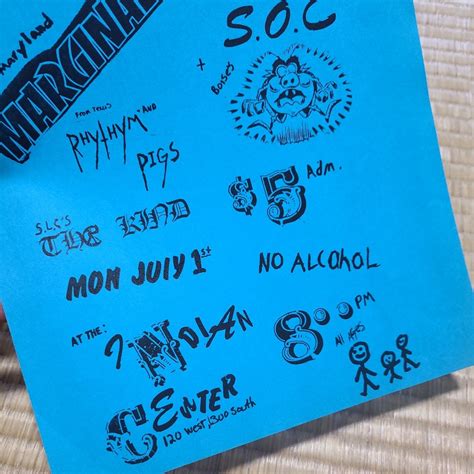 maryland
MARGINA
S.O.C
+ BOISES
RHYTHYM" AND
PIGS
$5 Adm.
S.L.C'S
THE KIND
MON JULY 1st
NO ALCOHOL
AT THE:
INDIAN
CENTER
120 WEST 1300 SOUTH
8:00 PM
All AGES